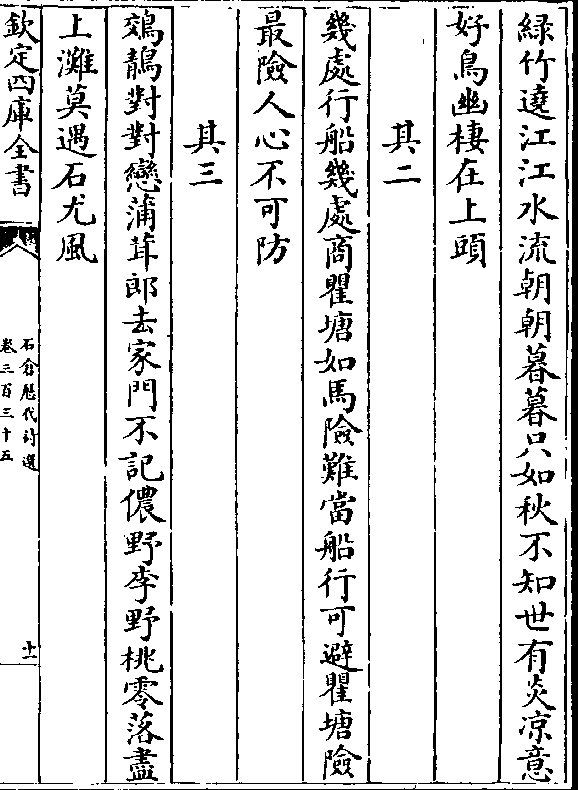 緑竹遶江江水流朝朝暮暮只如秋不知世有炎凉意
好鳥幽棲在上頭
其二
幾處行船幾處商瞿塘如馬險難當船行可避瞿塘險
最險人心不可防
其三
鵁鶄對對戀蒲茸郎去家門不記儂野李野桃零落盡
上灘莫遇石尤風
欽定四庫全書
石倉歷代詩選
卷三百三十五
十一